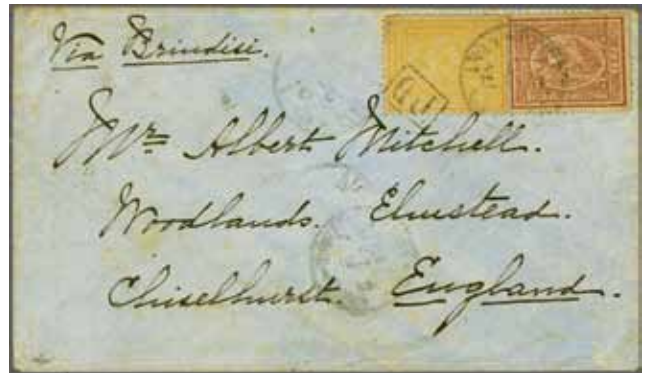 Via Brindisi.
Mr Albert Mitchell.
Woodlands. Elmstead.
Chiselhurst. England.